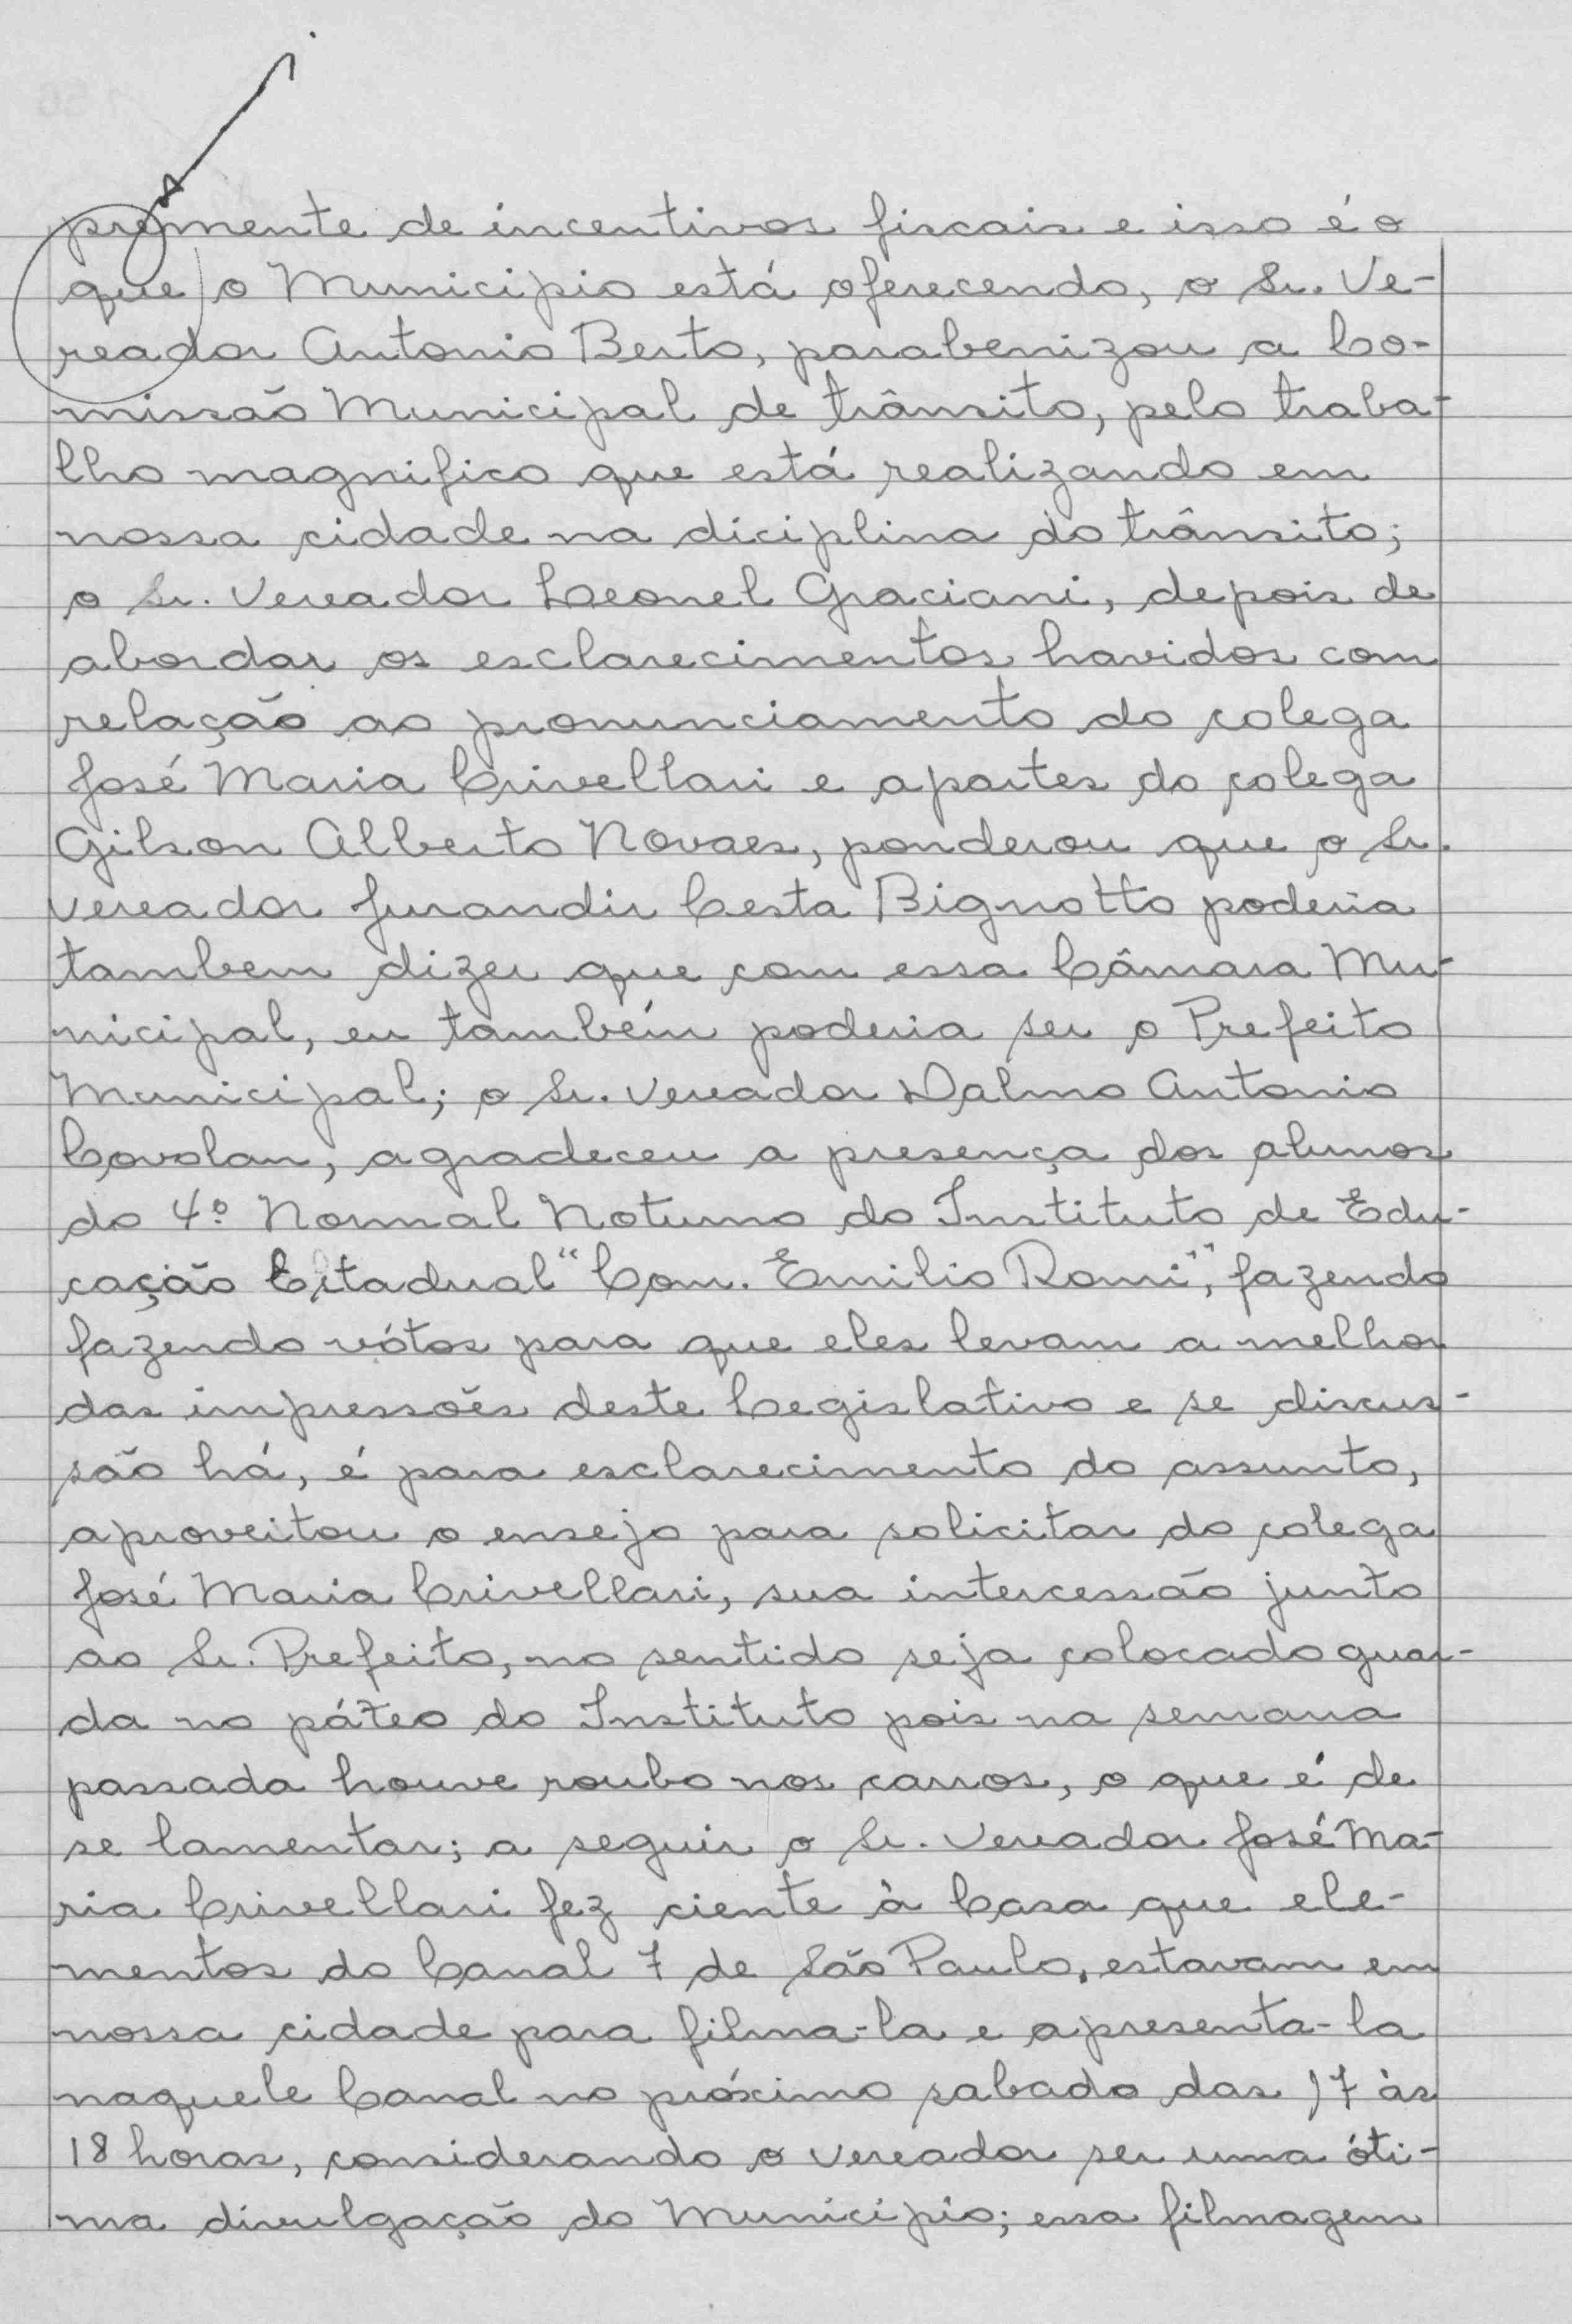 premente de incentivos fiscais e isso é o
que o Municipio está oferecendo, o Sr. Ve-
reador Antonio Berto, parabenizou a Co-
missão Municipal de trânsito, pelo traba-
lho magnifico que está realizando em
nossa cidade na diciplina do trânsito;
o Sr. Vereador Leonel Graciani, depois de
abordar os esclarecimentos havidos com
relação ao pronunciamento do colega
José Maria Crivellari e apartes do colega
Gilson Alberto Novaes, ponderou que o Sr.
vereador Jurandir Cesta Bignotto poderia
tambem dizer que com essa Câmara Mu-
nicipal, eu também poderia ser o Prefeito
Municipal; o Sr. vereador Dalmo Antonio
Covolan, agradeceu a presença dos alunos
do 4º Normal Noturno do Instituto de Edu-
cação Estadual "Com. Emilio Romi", fazendo
fazendo vótos para que eles levam a melhor
das impressões deste Legislativo e se discus-
são há, é para esclarecimento do assunto,
aproveitou o ensejo para solicitar do colega
José Maria Crivellari, sua intercessão junto
ao Sr. Prefeito, no sentido seja colocado guar-
da no páteo do Instituto pois na semana
passada houve roubo nos carros, o que é de
se lamentar; a seguir o Sr. vereador José Ma-
ria Crivellari fez ciente à Casa que ele-
mentos do Canal 7 de São Paulo, estavam em
nossa cidade para filma-la e apresenta-la
naquele Canal no próximo sabado das 17 às
18 horas, considerando o vereador ser uma óti-
ma divulgação do Municipio; essa filmagem